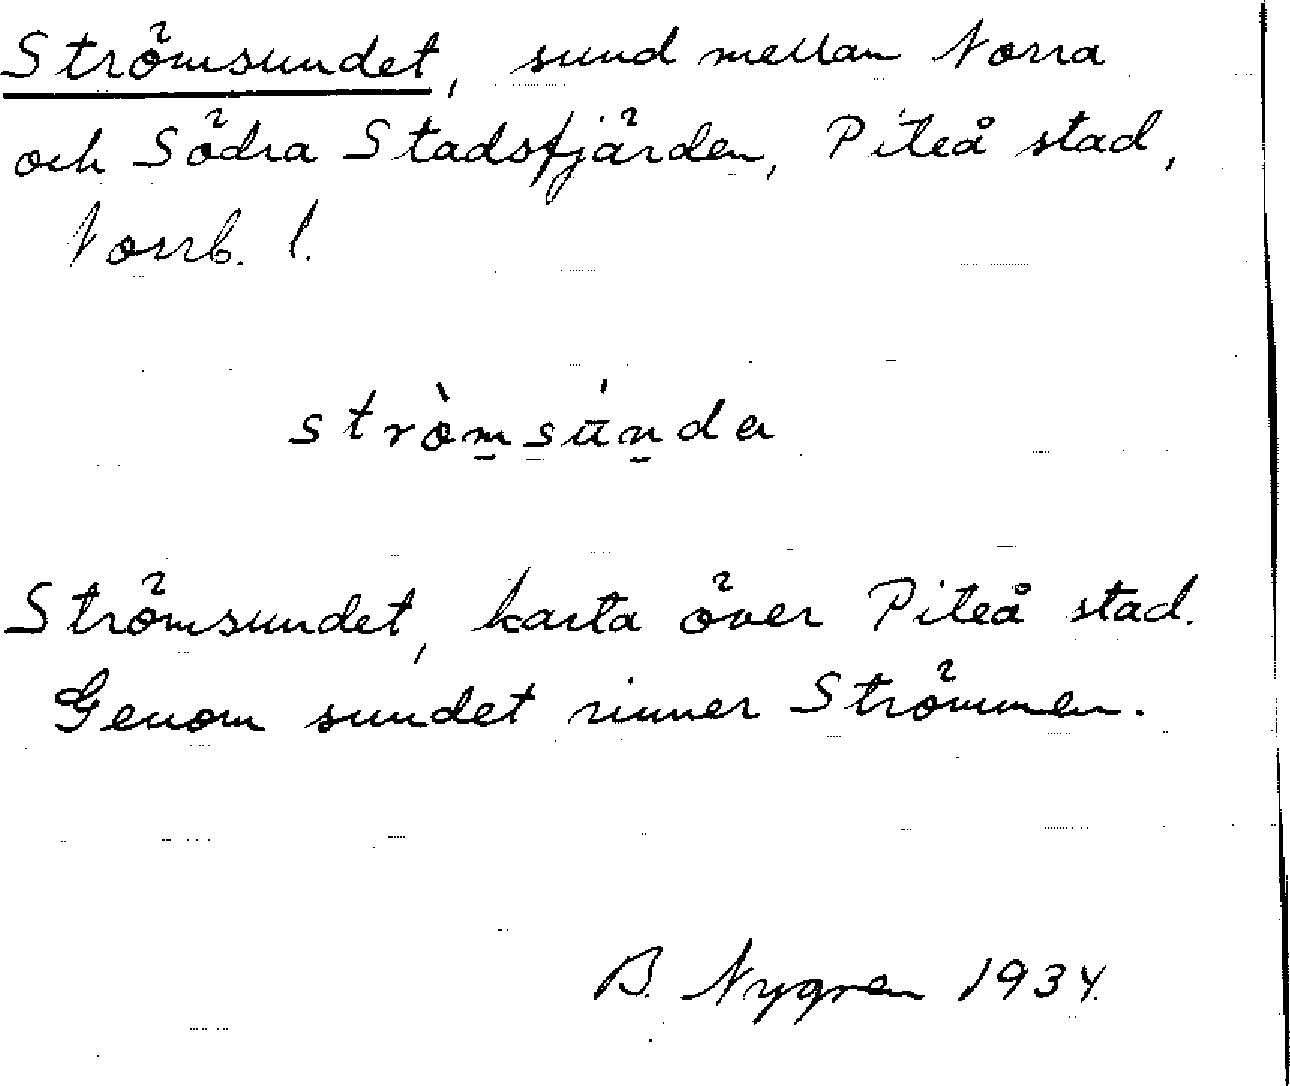 Strömsundet, sund mellan Norra
och Södra Stadsfjärden, Piteå stad,
Norrb. l.
strò̱msū́ṉda
Strömsundet, karta över Piteå stad.
Genom sundet rinner Strömmen.
B. Nygren 1934.